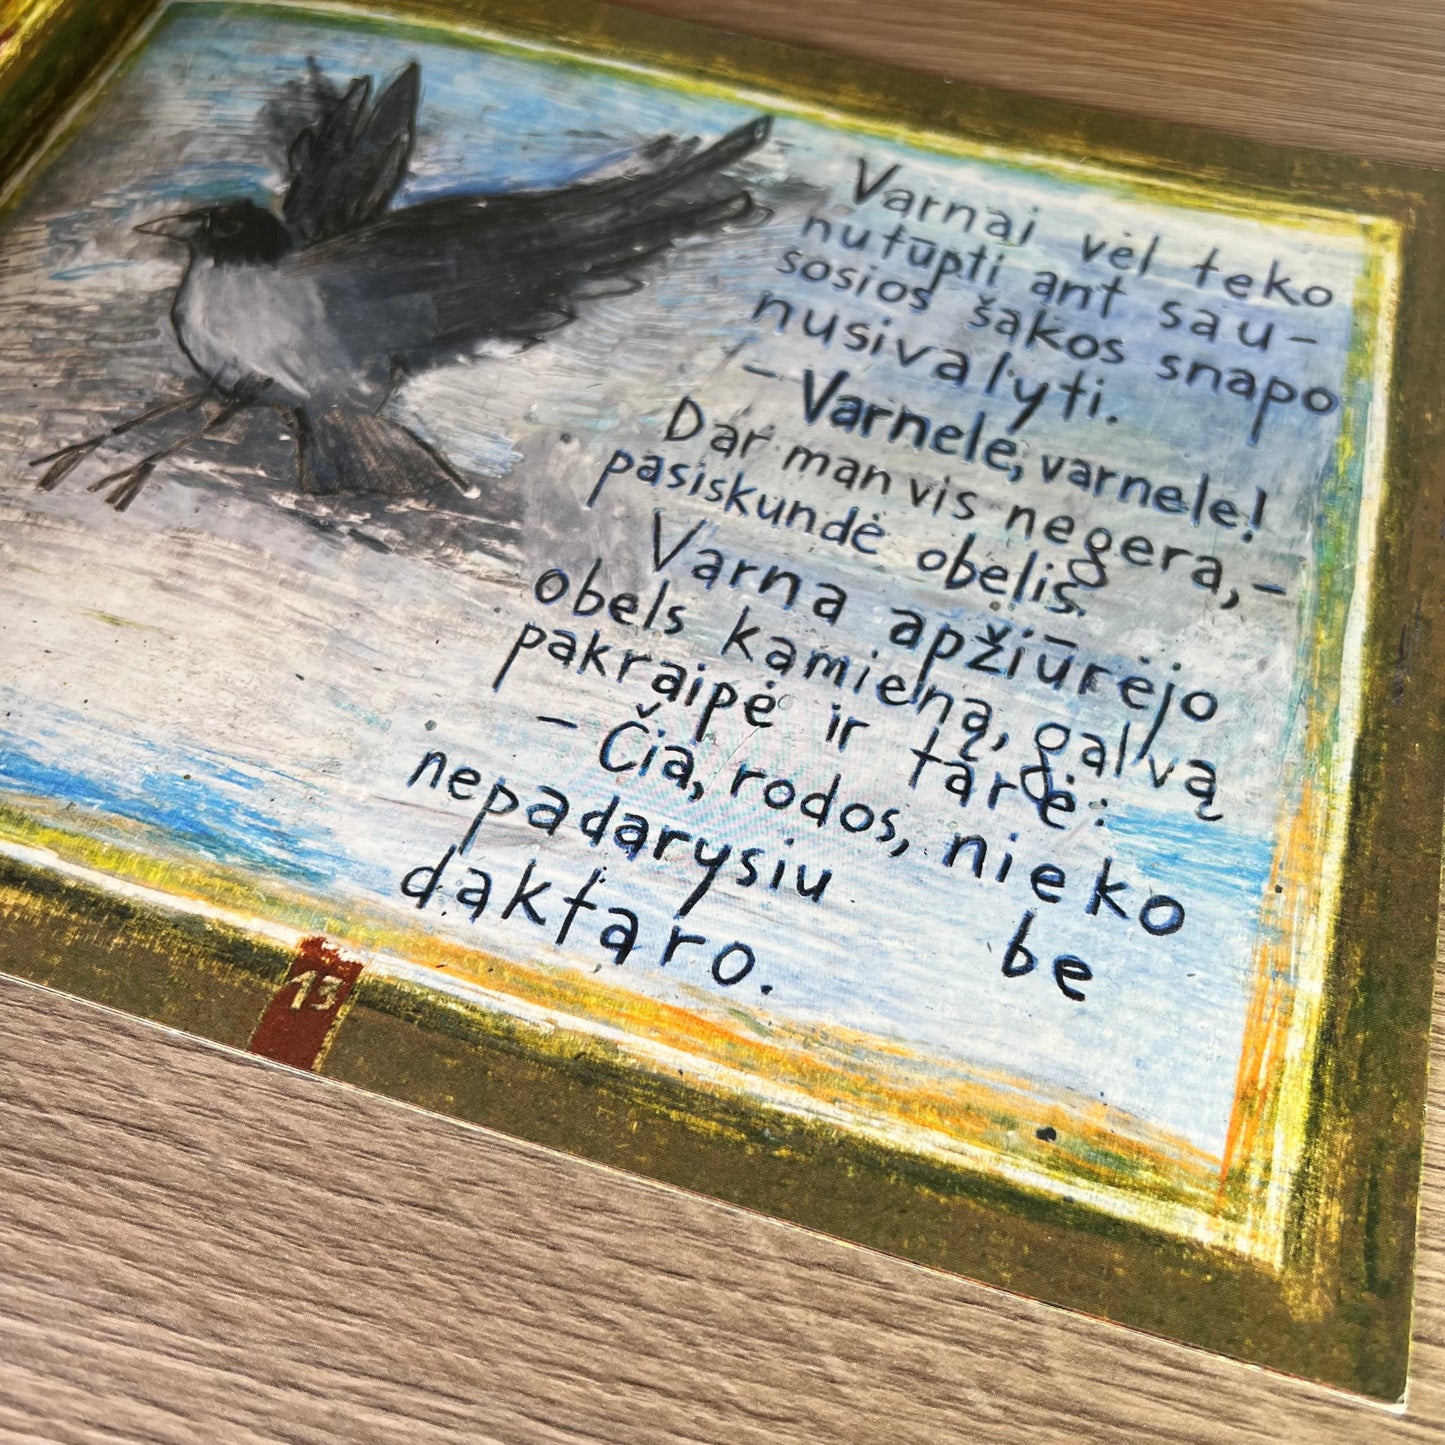 Varnai vėl teko
nutūpti ant sau-
sosios šakos snapo
nusivalyti.
– Varnele, varnele!
Dar man vis negera, –
pasiskundė obelis.
Varna apžiūrėjo
obels kamieną, galvą
pakraipė ir tarė:
– Čia, rodos, nieko
nepadarysiu be
daktaro.
13